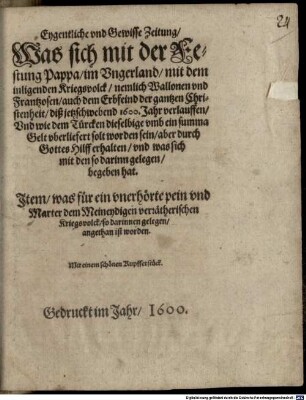 24
Eygentliche vnd Gewisse Zeitung/
Was sich mit der Fe-
stung Pappa/ im Vngerland/ mit dem
inligenden Kriegsvolck/ nemlich Wallonen vnd
Frantzosen/ auch dem Erbfeind der gantzen Chri-
stenheit/ diß jetzschwebend 1600. Jahr verlauffen/
Vnd wie dem Türcken dieselbige vmb ein summa
Gelt vberliefert solt worden sein/ aber durch
Gottes Hilff erhalten/ vnd was sich
mit den so darinn gelegen/
begeben hat.
Item/ was für ein vnerhörte pein vnd
Marter dem Meineydigen verrätherischen
Kriegsvolck/ so darinnen gelegen/
angethan ist worden.
Mit einem schönen Kupfferstück.
Gedruckt im Jahr/ 1600.